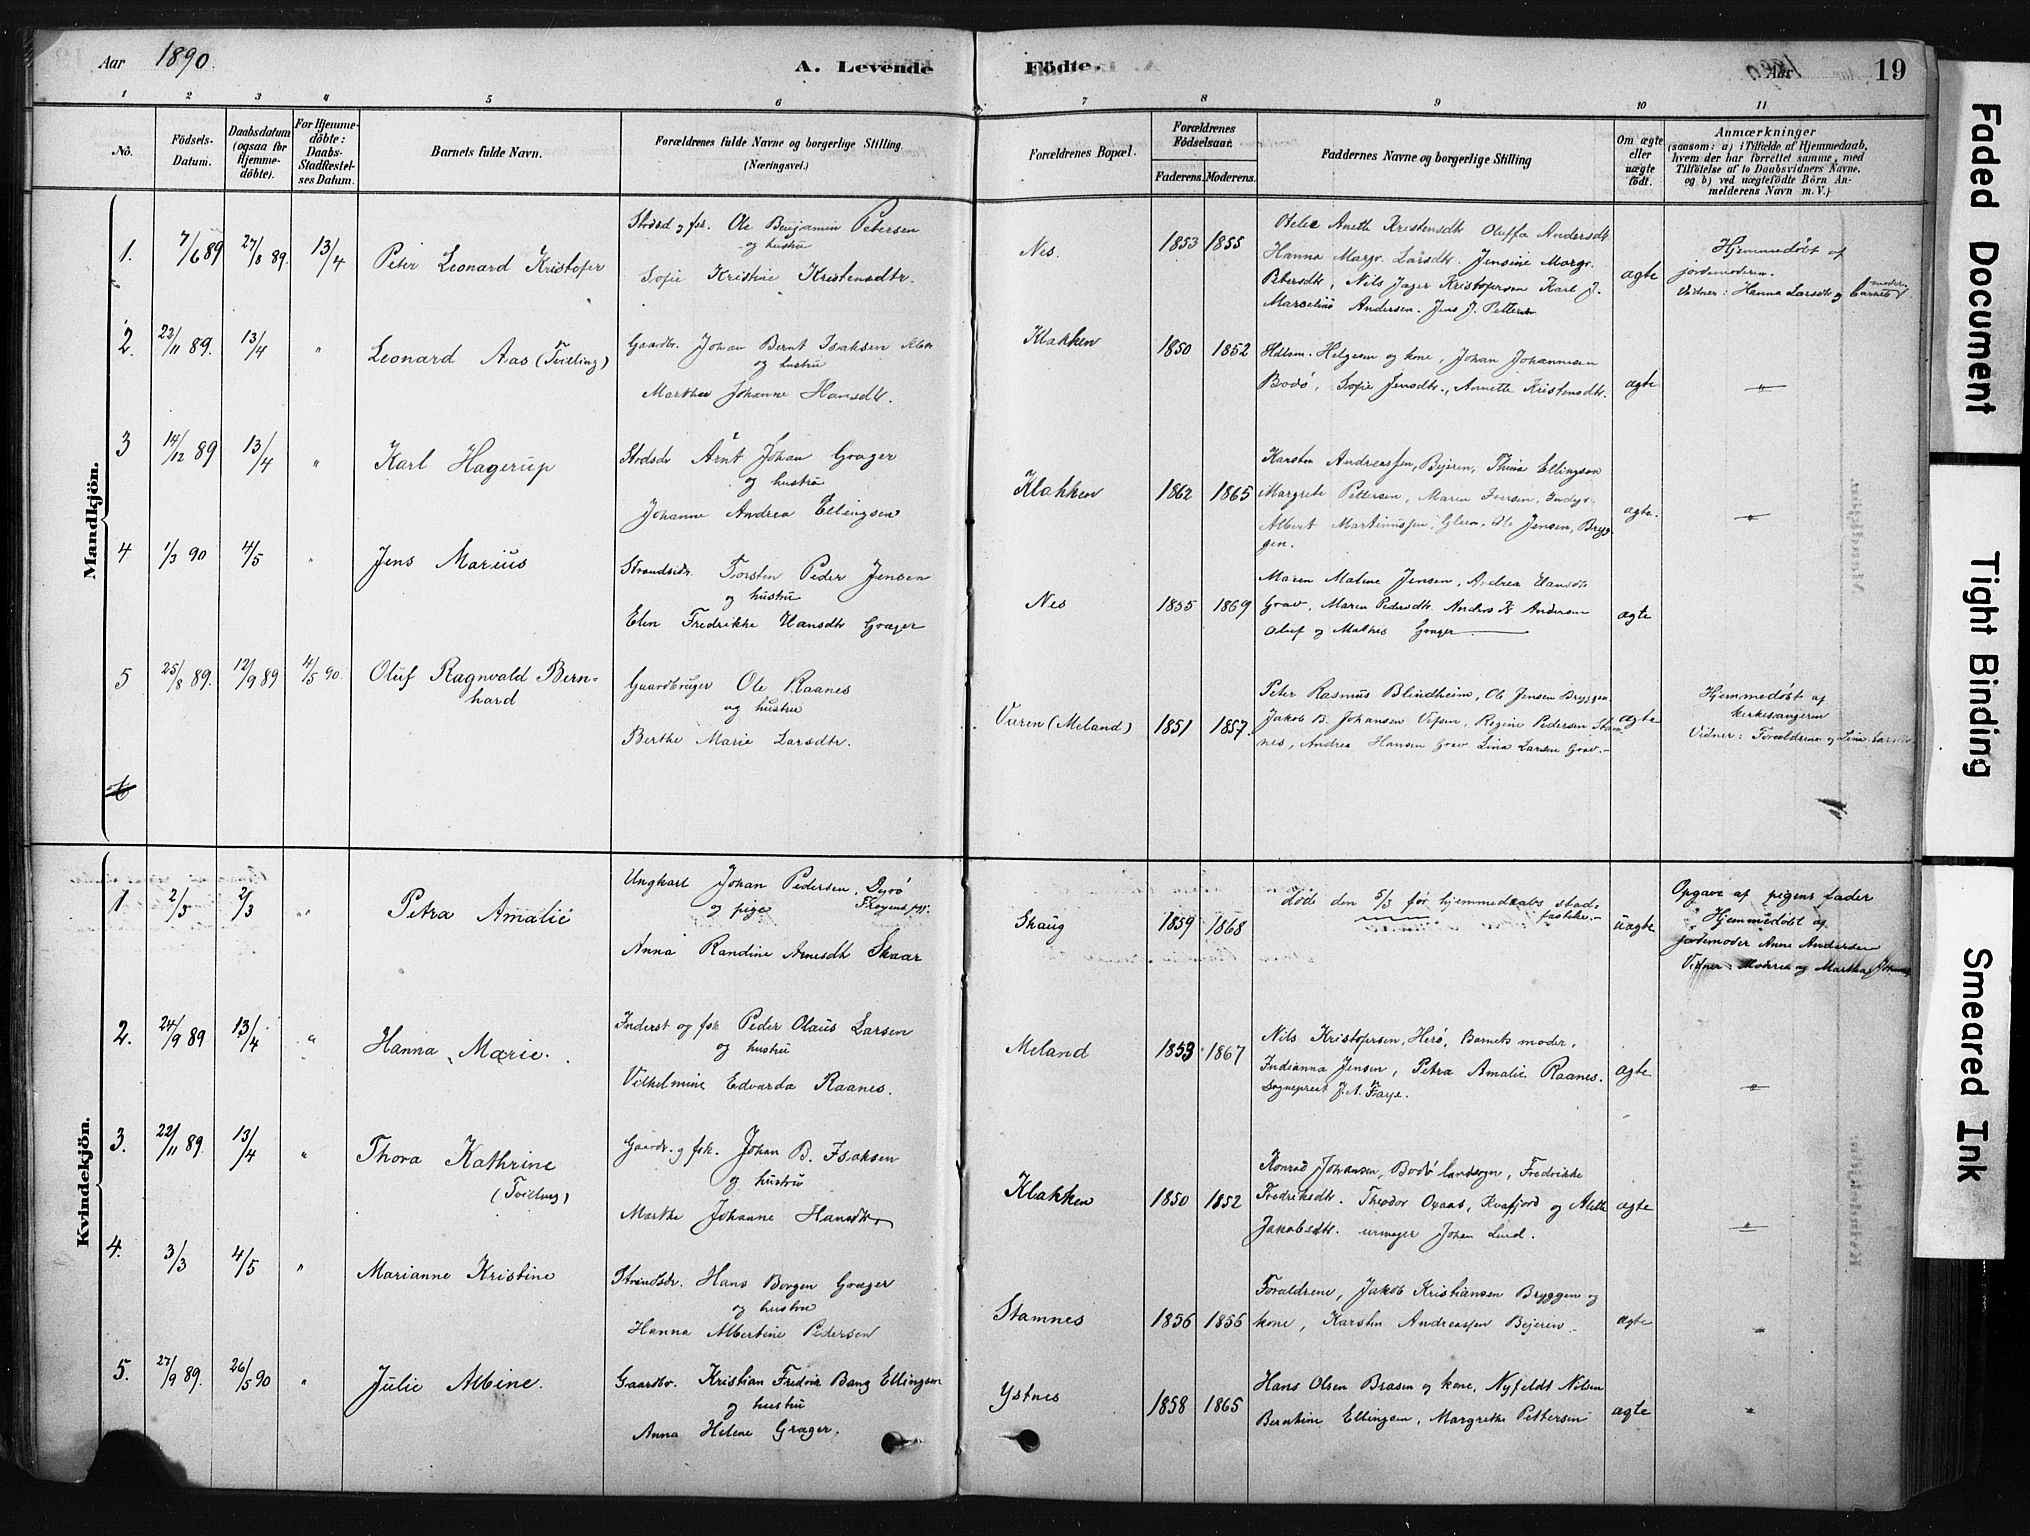 Aar 1890. A. Levende Födte. Aar 1890 19
1 2 3 4 5 6 7 8 9 10 11
No. Födsels-Datum. Daabsdatum (ogsaa for Hjemmedöbte). For Hjemmedöbte: Daabs-Stadfæstelses Datum. Barnets fulde Navn. Forældrenes fulde Navne og borgerlige Stilling (Næringsvei.) Forældrenes Bopæl. Forældrenes Födselsaar. Faderens. Moderens. Faddernes Navne og borgerlige Stilling Om ægte eller uægte födt. Anmærkninger (saasom: a) i Tilfælde af Hjemmedaab, hvem der har forrettet samme, med Tilföielse af to Daabsvidners Navne, og b) ved uægtefödte Börn Anmelderens Navn m. V.)
Mandkjön.
1. 7/6 89 27/8 89. 13/4 Peter Leonard Kristofer
Ole Benjamin Petersen
og hustru
Sofie Kristine Kristensdtr.
Nes. 1853 1855
Anette Kristensdt. Oluffa Andersdt.
Hanna Margr. Larsdtr. Jensine Margr.
Petersdtr, Nils Jager Kristofersen Karl J.
Marselius Andersen. Jens J. Petters
agte
Hjemmedøbt af
jordemoderen.
Vidner: Hanna Larsdtr og Barnets moder
2. 22/11 89. 13/4 " Leonard Aas (Tvilling)
Gaardbr. Johan Bernt Isaksen
og hustru
Marthe Johanne Hansdtr.
Klakken 1850 1852
Helgesen og kone, Johan Johannesen
Bodø, Sofie Jensdtr., Annette Kristensdtr.
agte "
3 14/12 89 13/4 " Karl Hagerup
Arnt Johan Grager
og hustru
Johanne Andrea Ellingsen
Klakken 1862 1865
Karsten Andreassen, Bejeren, Thina Ellingsen
Margrete Pettersen, Maren Iversen,
Albert Martinussen, Gleen, Ole Jensen, Bryg
gen.
agte. "
4 1/3 90 4/5 " Jens Marius
Strandsidr. Torsten Peder Jensen
og hustru
Elen Fredrikke Hansdtr Grager
Nes 1855 1869
Maren Malene Jensen, Andrea Hansdtr
Grav, Maren Pedersdtr. Anders K Andersen
Oluf og Mathes Grager
agte
5 25/8 89. 12/9 89 4/5 90. Oluf Ragnvald Bern-
hard
Gaardbruger Ole Raanes
og hustru
Berthe Marie Larsdtr.
Vuren (Meland) 1851 1857.
Peter Rasmus Blindheim, Ole Jensen Bryggen
Jakob B. Johansen Vefsen, Regine Pedersen Stam
nes, Andrea Hansen Grav Lina Larsen Grav.
agte
Hjemmedøbt af
kirkesangeren
Vidner: Forældrene og Lina Larsdtr
6
Kvindekjön.
1 2/3 2/3 " Petra Amalie
Ungkarl Johan Pedersen, Dyrø
og pige
Anna Randine Arnesdtr Skaar
Skaug 1859 1868
døde den 5/3 før hjemmedaabs stad-
fæstelse.
uagte
Opgave af pigens fader
Hjemmedøbt af
jordemoder Anne Andersen
Vidner: Moderen og Martha
2. 24/9 89 13/4 " Hanna Marie.
Inderst og fsk Peder Olaus Larsen
og hustru
Vilhelmine Edvarda Raanes.
Meland 1859 1867
Nils Kristofersen, Herø, Barnets moder,
Indianna Jensen, Petra Amalie Raanes.
Sognepræst J. A. Faye.
agte "
3. 22/11 89. 13/4 " Thora Kathrine
(Tvilling)
Gaardr. og fsk. Johan B. Isaksen
og hustru
Marthe Johanne Hansdtr
Klakken 1850 1852
Konrad Johansen, Bodø landsogn, Fredrikke
Fredriksdtr. Theodor Oxaas, Kvæfjord og Alette
Jakobsdtr. urmager Johan Lind.
agte "
4. 3/3 4/5 " Marianne Kristine
Strandsdr. Hans Borgen Grager
og hustru
Hanna Albertine Pedersen
Stamnes 1856 1856
Forældrene, Jakob Kristiansen Bryggen og
kone, Karsten Andreassen Bejeren
agte "
5. 27/9 89. 26/5 90 " Julie Albine.
Gaardbr. Kristian Fredrik Bang Ellingsen
og hustru
Anna Helene Grager.
Ystnes 1858 1865
Hans Olsen Brasen og kone, Nyfeldt Nilsen
Berntine Ellingsen, Margrethe Pettersen
agte "
Faded Document
Tight Binding
Smeared Ink